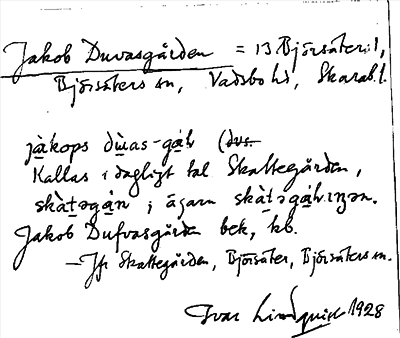 Jakob Duvasgården = 13 Björsäter:1,
Björsäters sn, Vadsbo hd, Skarab. l.
jà̠kops dù̠as-gá̠ḷ (dvs.
Kallas i dagligt tal Skattegården,
skàt̠əgá̠n ; ägarn skàt̠əgá̠ḷ.ıŋən.
Jakob Dufvasgården bek, kb.
– Jfr Skattegården, Björsäter, Björsäters sn.
Ivar Lindquist 1928